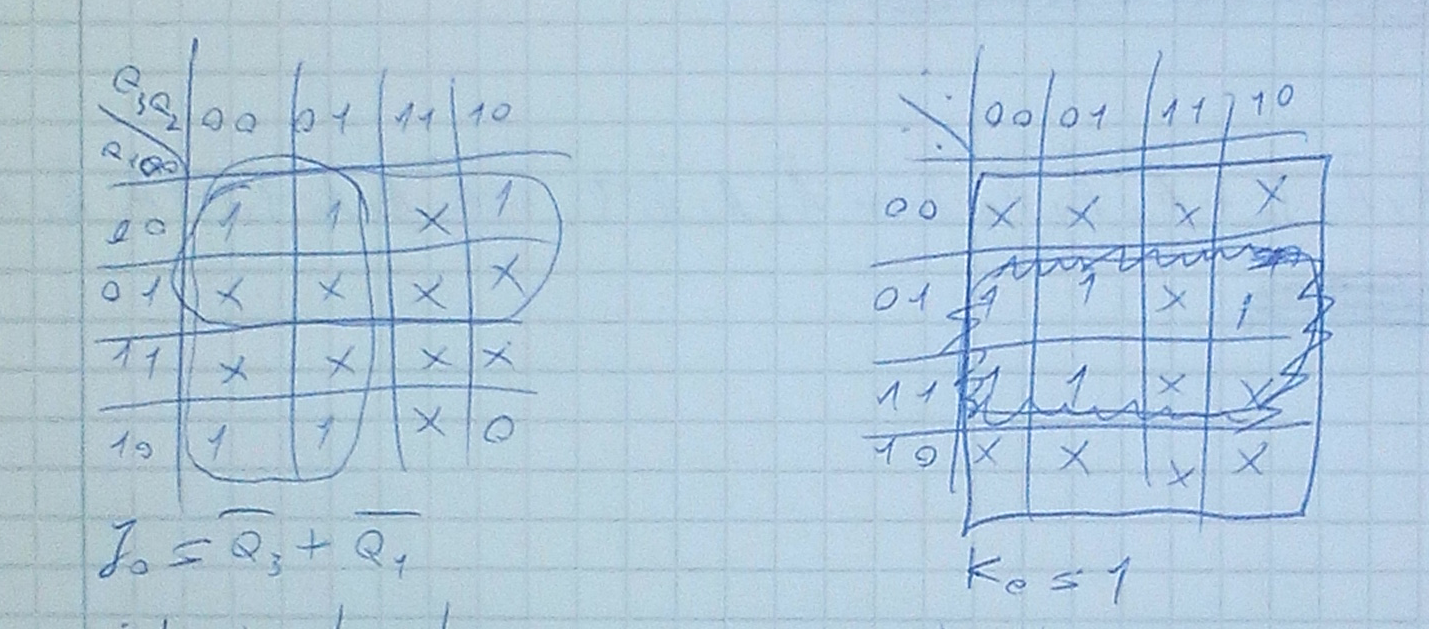 Q₃Q₂ 00 01 11 10
Q₁Q₀
00 1 1 X 1
01 X X X X
11 X X X X
10 1 1 X 0
J₀ = Q̅₃ + Q̅₁
00 01 11 10
00 X X X X
01 1 1 X 1
11 1 1 X X
10 X X X X
K₀ = 1